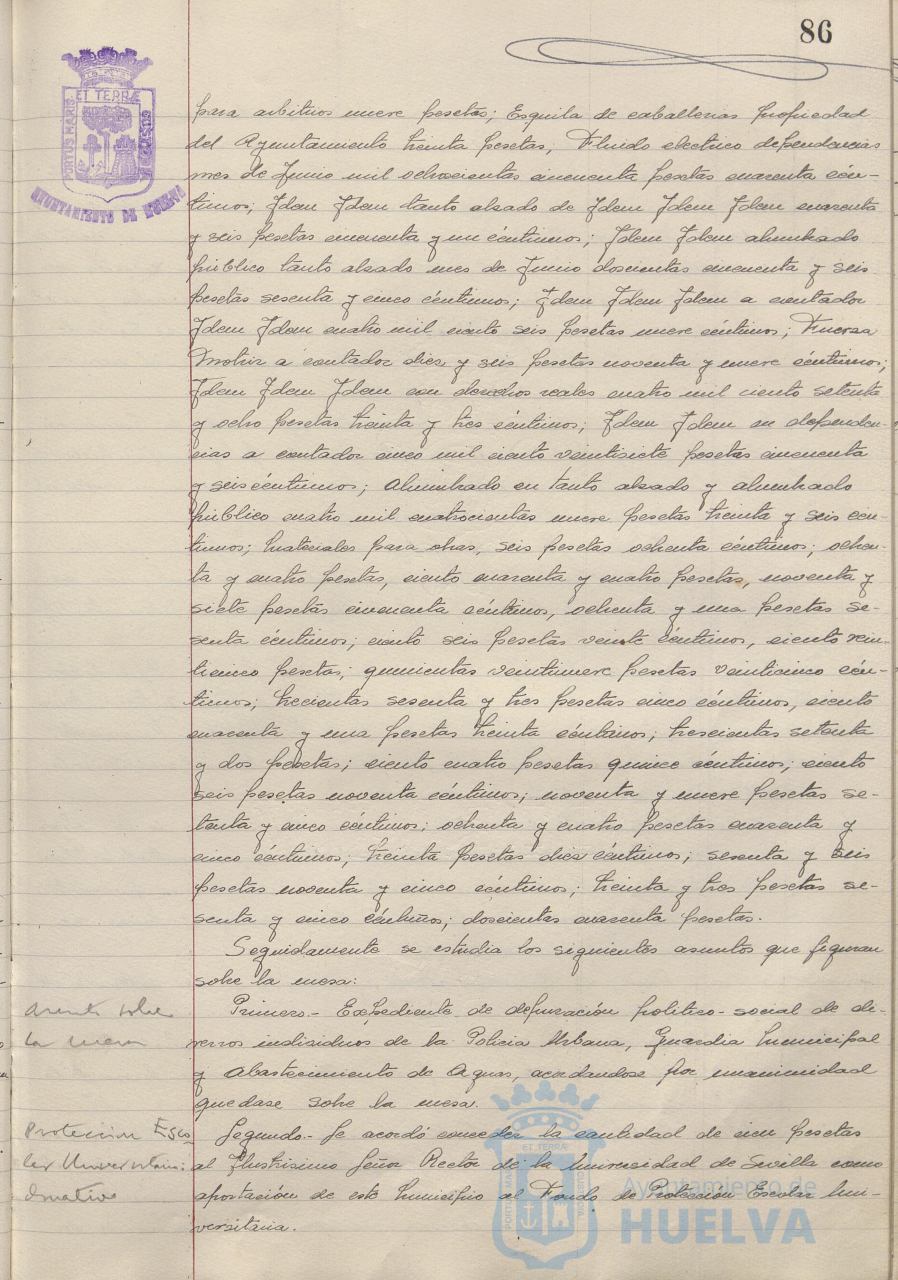 86
ET TERRÆ
PORTUS MARIS
CUSTODIA
AYUNTAMIENTO DE HUELVA
para arbitrios nueve pesetas; Esquila de caballerias propiedad
del Ayuntamiento treinta pesetas, Fluido electrico dependencias
mes de Junio mil ochocientas cincuenta pesetas cuarenta cén-
timos; Idem Idem tanto alzado de Idem Idem Idem cuarenta
y seis pesetas cincuenta y un céntimos; Idem Idem alumbrado
público tanto alzado mes de Junio doscientas cincuenta y seis
pesetas sesenta y cinco céntimos; Idem Idem Idem a contador
Idem Idem cuatro mil ciento seis pesetas nueve céntimos; Fuerza
Motriz a contador diez y seis pesetas noventa y nueve céntimos;
Idem Idem Idem con derechos reales cuatro mil ciento setenta
y ocho pesetas treinta y tres céntimos; Idem Idem en dependen-
cias a contador cinco mil ciento veintisiete pesetas cincuenta
y seis céntimos; alumbrado en tanto alzado y alumbrado
público cuatro mil cuatrocientas nueve pesetas treinta y seis cén-
timos; materiales para obras, seis pesetas ochenta céntimos; ochen-
ta y cuatro pesetas, ciento cuarenta y cuatro pesetas, noventa y
siete pesetas cincuenta céntimos, ochenta y una pesetas se-
senta céntimos; ciento seis pesetas veinte céntimos, ciento vein-
ticinco pesetas; quinientas veintinueve pesetas veinticinco cén-
timos; trecientas sesenta y tres pesetas cinco céntimos, ciento
cuarenta y una pesetas treinta céntimos; trescientas setenta
y dos pesetas; ciento cuatro pesetas quince céntimos; ciento
seis pesetas noventa céntimos; noventa y nueve pesetas se-
tenta y cinco céntimos; ochenta y cuatro pesetas cuarenta y
cinco céntimos; treinta pesetas diez céntimos; sesenta y seis
pesetas noventa y cinco céntimos; treinta y tres pesetas se-
senta y cinco céntimos; doscientas cuarenta pesetas.
Seguidamente se estudia los siguientes asuntos que figuran
sobre la mesa:
Asunto sobre
la mesa
Primero.- Expediente de depuración politico-social de di-
versos individuos de la Policia Urbana, Guardia Municipal
y Abastecimiento de Aguas, acordandose por unanimidad
quedase sobre la mesa.
Proteccion Esco
lar Universitaria:
Donativo
Segundo.- Se acordó conceder la cantidad de cien pesetas
al Ilustrisimo Señor Rector de la Universidad de Sevilla como
aportación de este Municipio al Fondo de Protección Escolar Uni-
versitaria.
ET TERRÆ
PORTUS MARIS
CUSTODIA
Ayuntamiento de
HUELVA